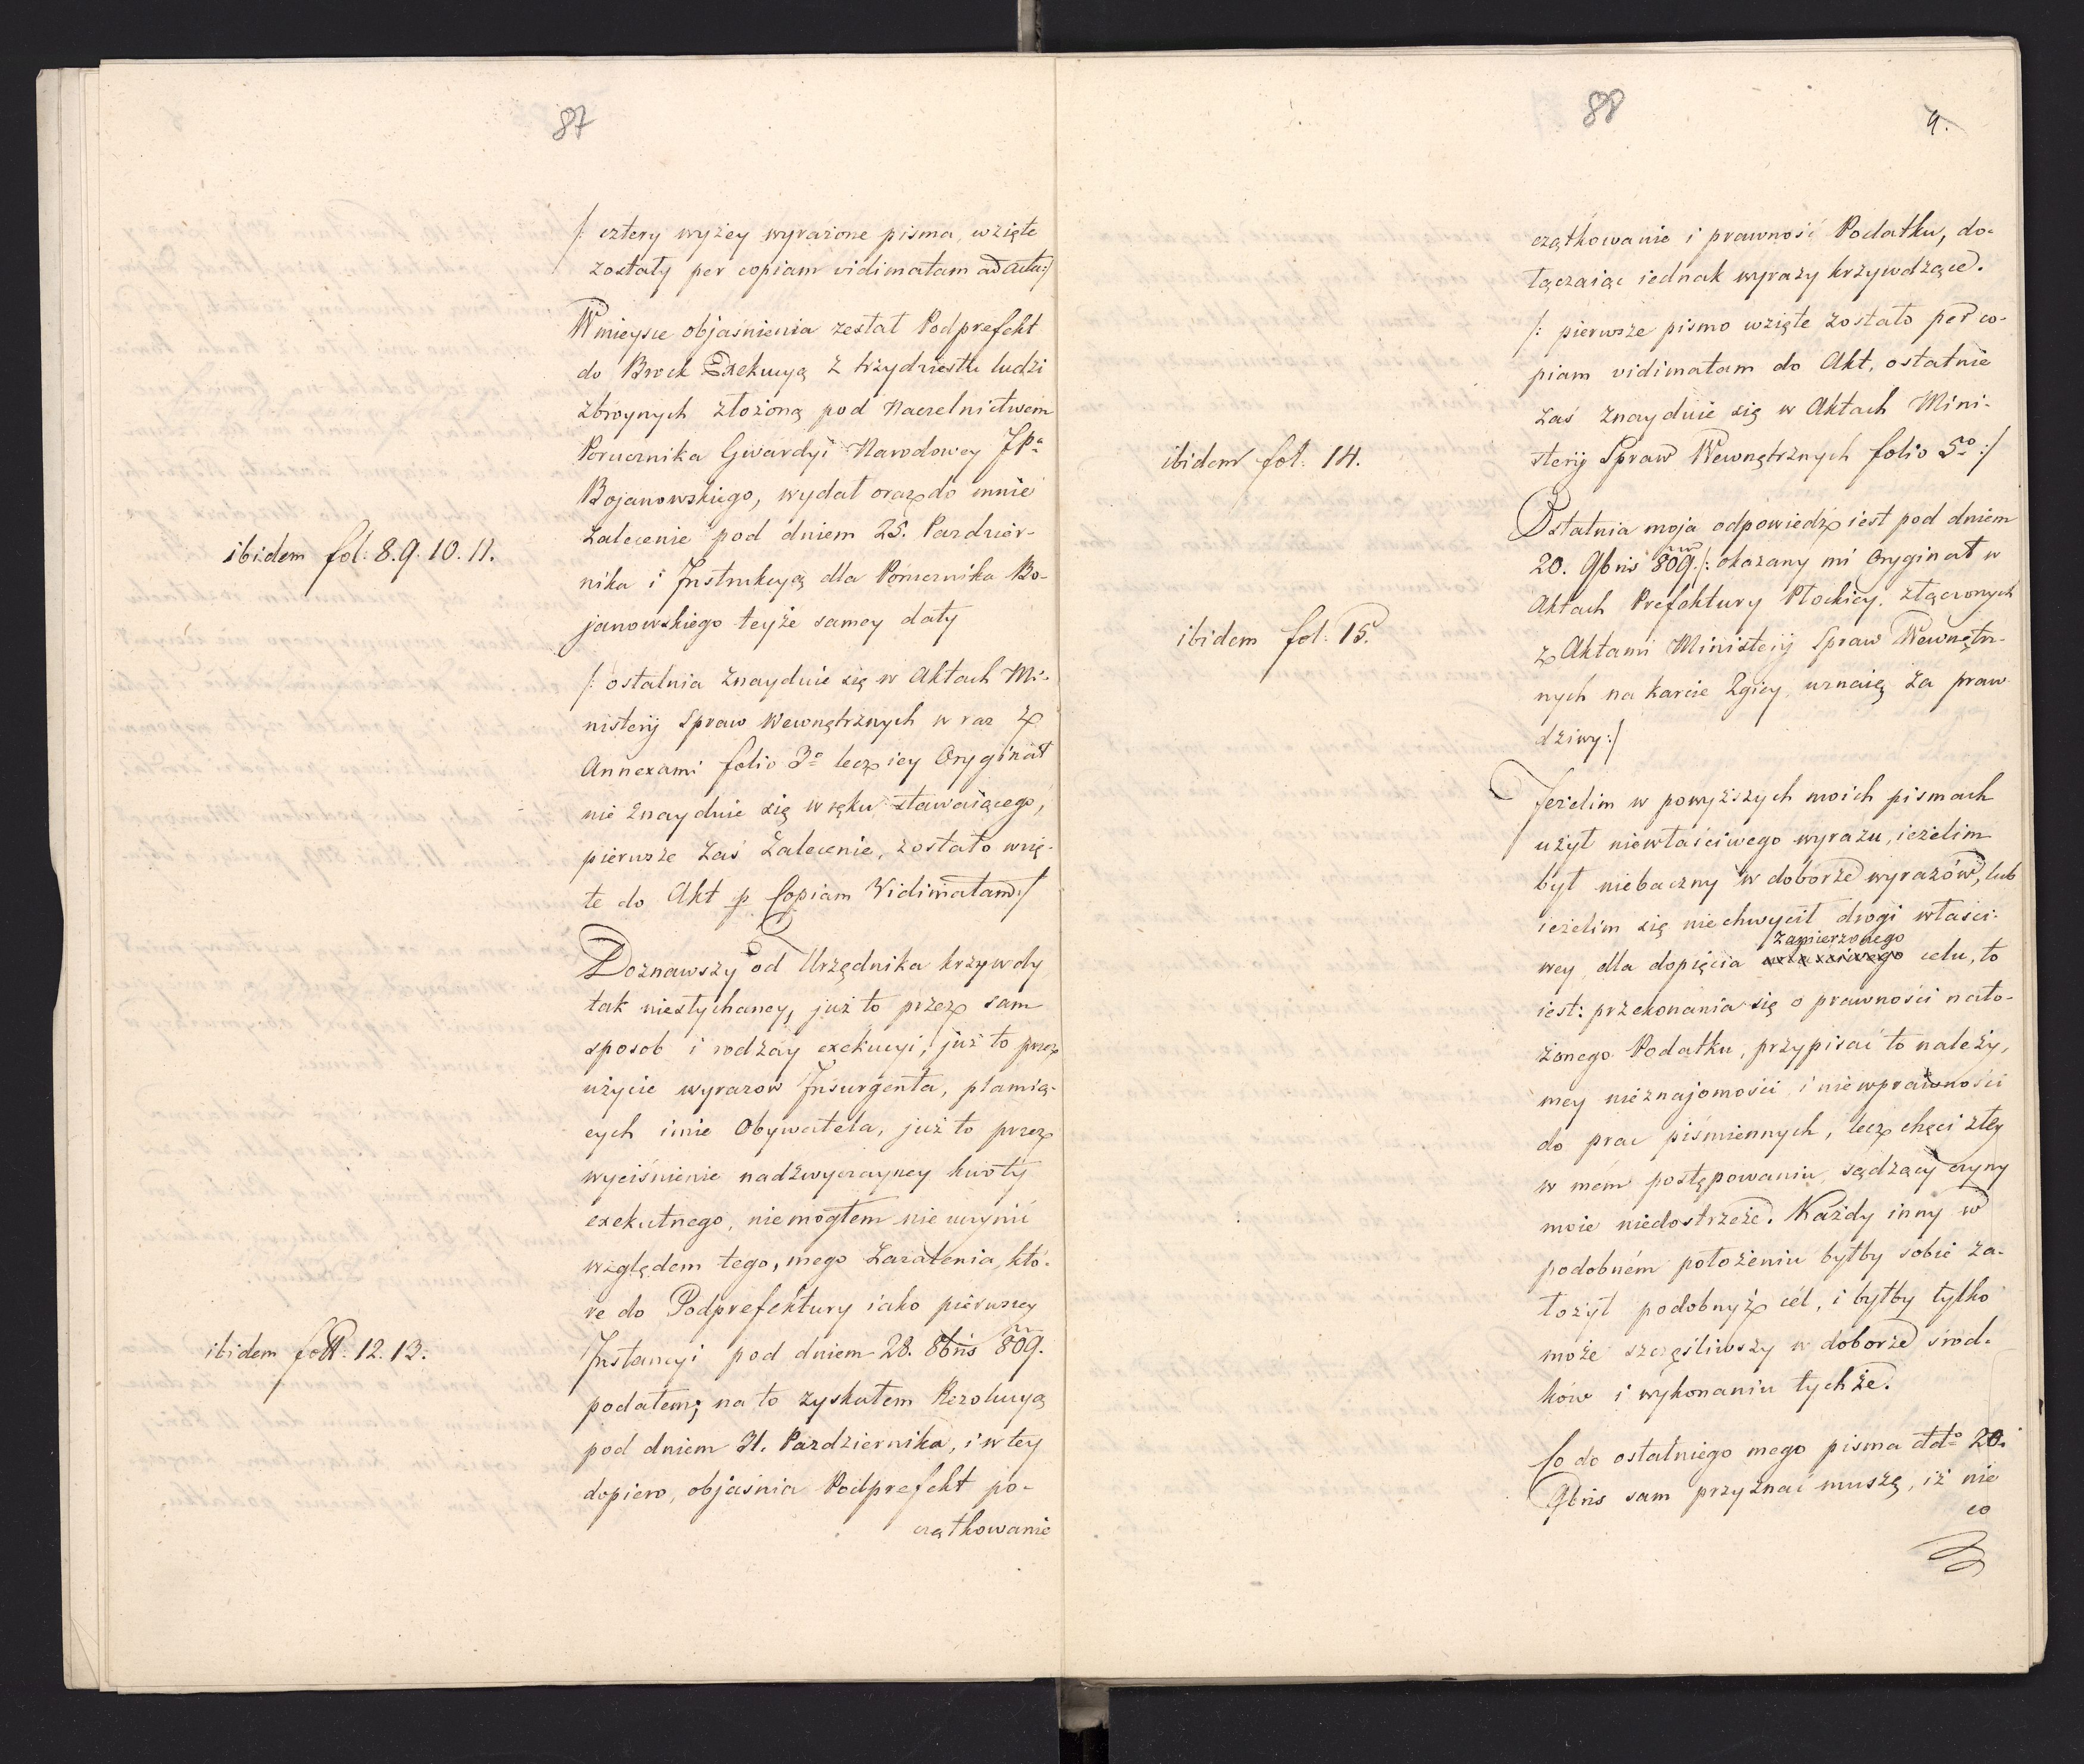 87
/: cztery wyżey wyrażone pisma, wzięte
zostały per copiam vidimatam ad Acta :/
W mieysce objaśnienia zesłał Podprefekt
do Brock Exekucyą z trzydziestu ludzi
zbroynych złożoną pod Naczelnictwem
Porucznika Gwardyi Narodowey JPa
Bojanowskiego, wydał oraz do mnie
ibidem fol: 8. 9. 10. 11.
zalecenie pod dniem 25. Pazdzier-
nika i Instrukcyą dla Porucznika Bo-
janowskiego teyże samey daty
/: ostatnia znayduie się w Aktach Mi-
nisterij Spraw Wewnętrznych w raz z
Annexami folio 3o lecz iey Oryginał
nie znayduie się w ręku stawaiącego,
pierwsze zaś zalecenie, zostało wzię-
te do Akt p Copiam Vidimatam :/
Doznawszy od Urzędnika krzywdy
tak niesłychaney, już to przez sam
sposob i rodzay exekucyi, już to przez
użycie wyrazow Insurgenta, plamią-
cych imie Obywatela, już to przez
wyciśnienie nadzwyczayney kwoty
exekutnego, nie mogłem nie uczynić
względem tego, mego zażalenia, któ-
re do Podprefektury iako pierwszey
ibidem foll. 12. 13.
Instancyi pod dniem 28. 8bris 809.
podałem; na to zyskałem Rezolucyą
pod dniem 31. Pazdziernika, i w tey
dopiero, objaśnia Podprefekt po-
czątkowanie
88
4.
czątkowanie i prawność Podatku, do-
łączaiąc iednak wyrazy krzywdzące.
/: pierwsze pismo wzięte zostało per co-
piam vidimatam do Akt, ostatnie
zaś znayduie się w Aktach Mini-
ibidem fol. 14.
sterij Spraw Wewnętrznych folio 5o :/
Ostatnia moja odpowiedz iest pod dniem
20. 9bris 809. /: okazany mi Oryginał w
Aktach Prefektury Płockiey. złączonych
ibidem fol. 15.
z Aktami Ministerij Spraw Wewnętrz-
nych na karcie 2giey, uznaię za praw
dziwy :/
Jeżelim w powyższych moich pismach
użył niewłaściwego wyrazu, ieżelim
był niebaczny w doborze wyrazów, lub
ieżelim się niechwycił drogi właści-
zamierzonego
wey, dla dopięcia celu, to
iest: przekonania się o prawności nało-
żonego Podatku, przypisać to należy,
mey nieznajomości i niewprawności
do prac piśmiennych, lecz chęci złey
w mém postępowaniu, sądzący czyny
moie niedostrzeże. Każdy inny w
podobném położeniu byłby sobie za-
łożył podobnyż cél, i byłby tylko
może szczęśliwszy w doborze środ-
ków i wykonaniu tychże.
Co do ostatniego mego pisma ddto 20.
9bris sam przyznać muszę, iż nie
co